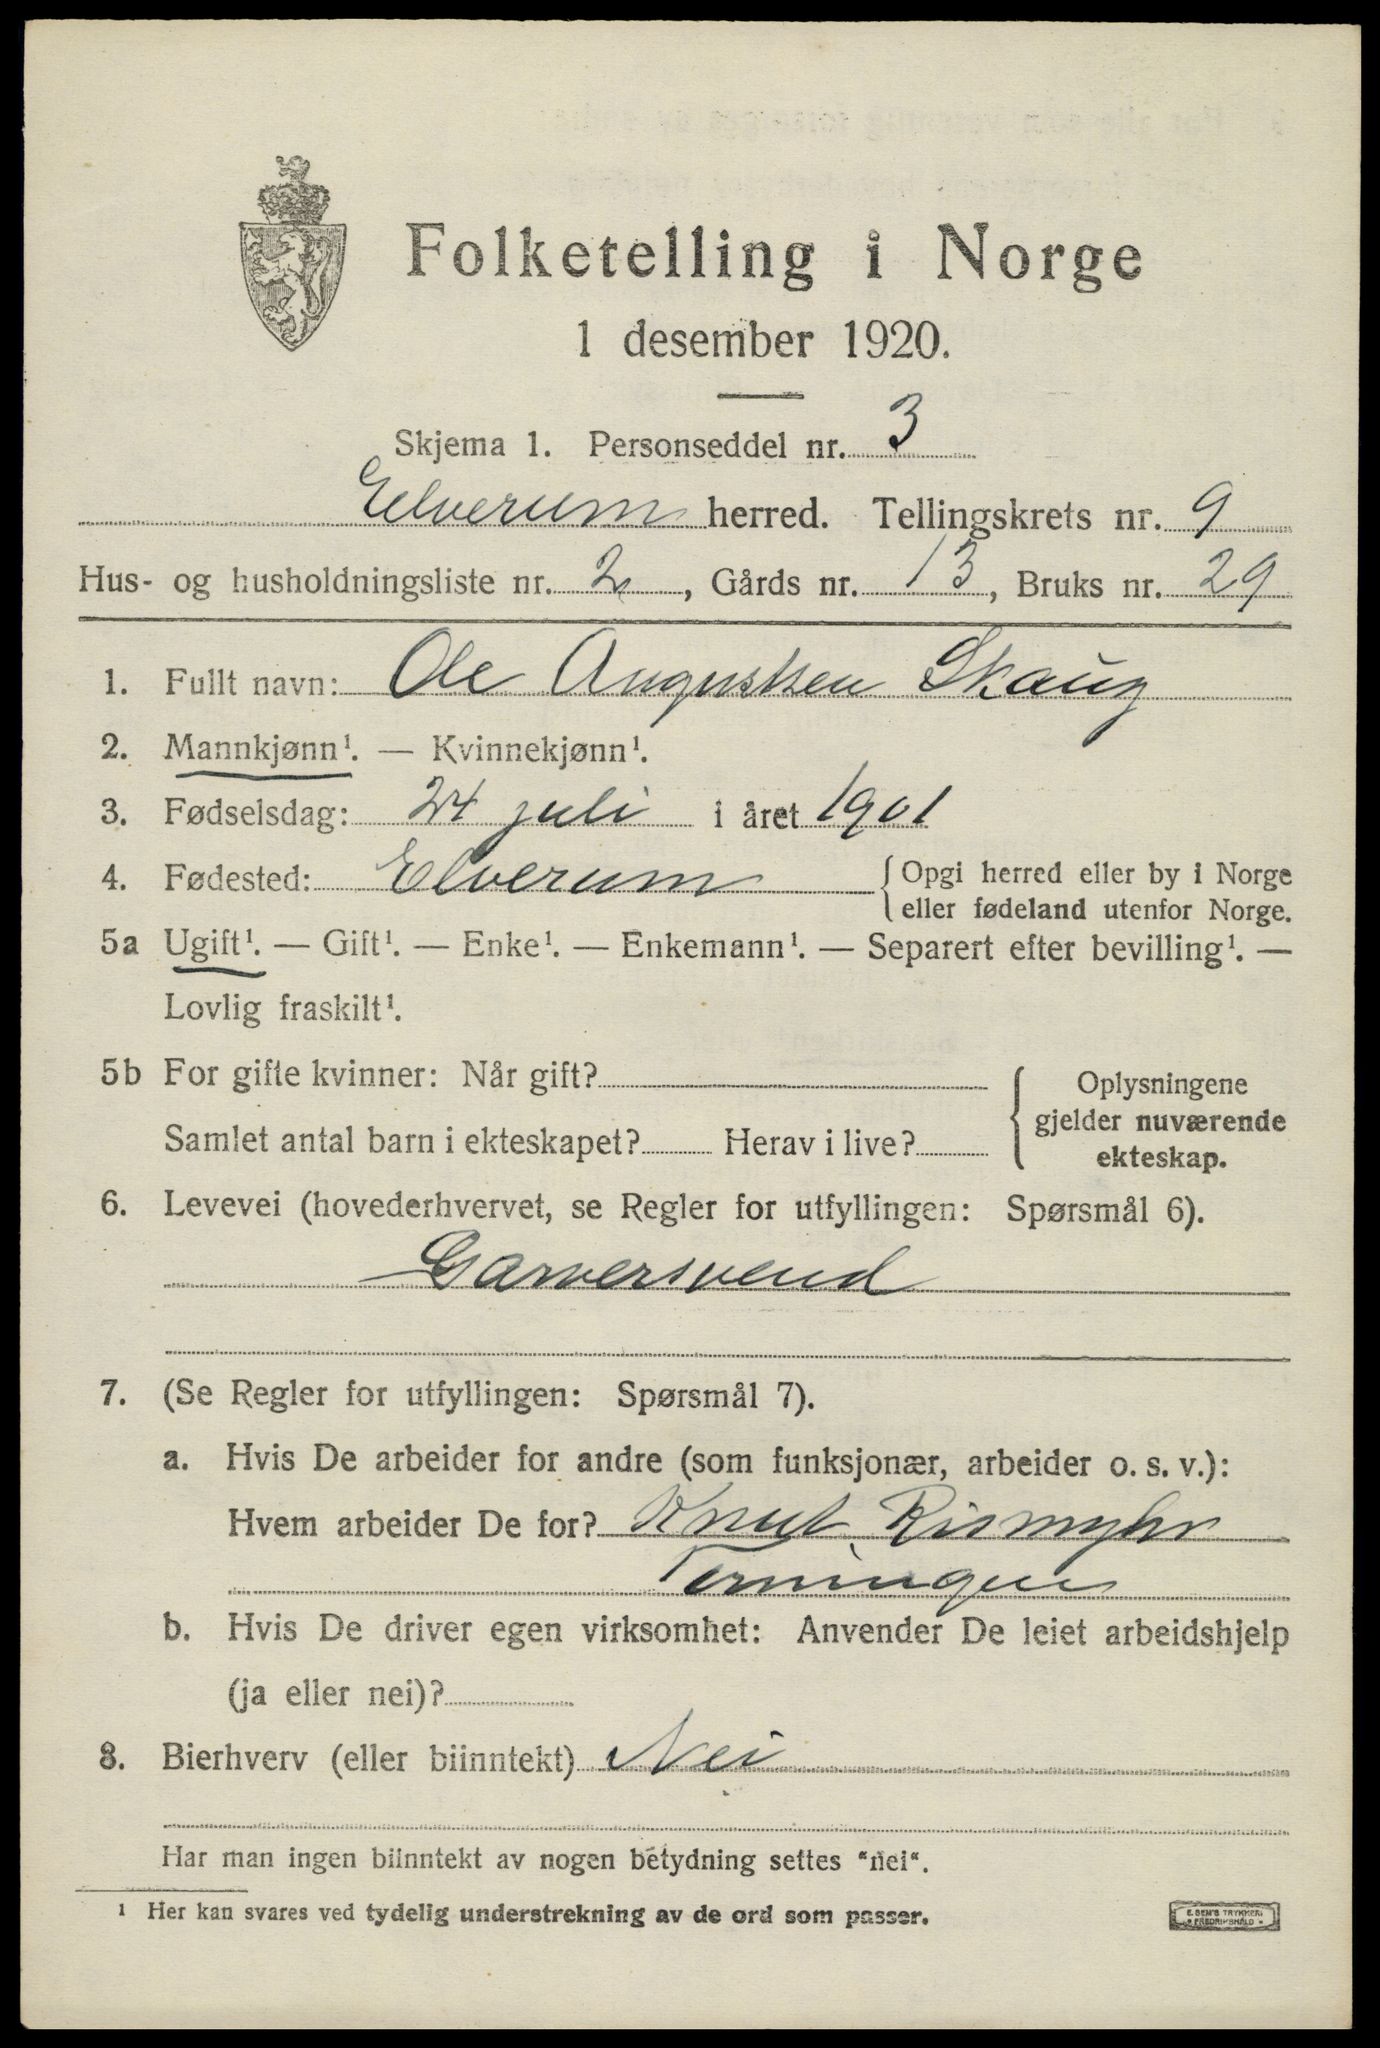 Folketelling i Norge
1 desember 1920.
Skjema 1. Personseddel nr. 3
Elverum herred. Tellingskrets nr. 9
Hus- og husholdningsliste nr. 2, Gårds nr. 13, Bruks nr. 29
1. Fullt navn: Ole Augustsen Skaug
2. Mannkjønn¹. — Kvinnekjønn¹.
3. Fødselsdag: 24 juli i året 1901
4. Fødested: Elverum {Opgi herred eller by i Norge
eller fødeland utenfor Norge.
5a Ugift¹. — Gift¹. — Enke¹. — Enkemann¹. — Separert efter bevilling¹. —
Lovlig fraskilt¹.
5b For gifte kvinner: Når gift?
Samlet antal barn i ekteskapet? Herav i live?
Oplysningene
gjelder nuværende
ekteskap.
6. Levevei (hovederhvervet, se Regler for utfyllingen: Spørsmål 6).
Garversvend
7. (Se Regler for utfyllingen: Spørsmål 7).
a. Hvis De arbeider for andre (som funksjonær, arbeider o. s. v.):
Hvem arbeider De for? Knut Rismyhr
Terningen
b. Hvis De driver egen virksomhet: Anvender De leiet arbeidshjelp
(ja eller nei)?
8. Bierhverv (eller biinntekt) Nei
Har man ingen biinntekt av nogen betydning settes "nei".
¹ Her kan svares ved tydelig understrekning av de ord som passer.
E. SEM'S TRYKKERI
FREDRIKSHALD